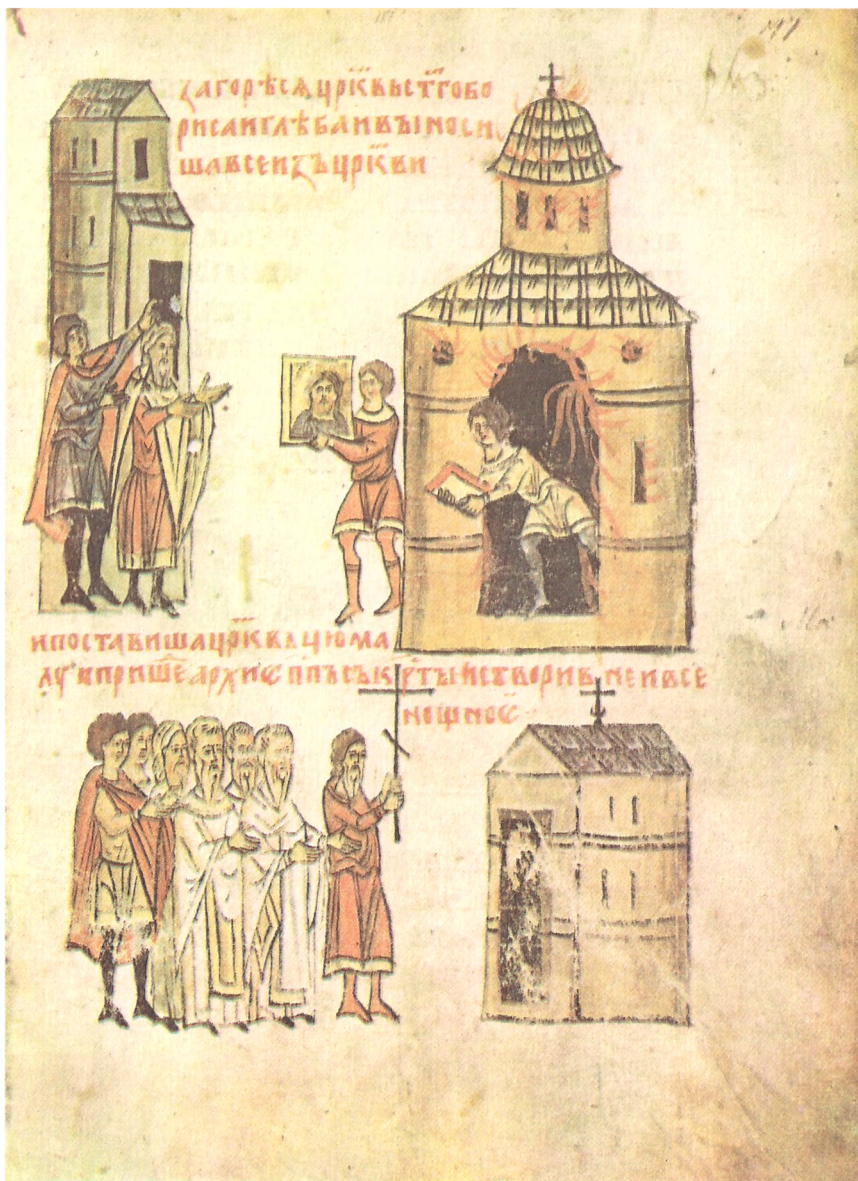 ꙁагорѣсѧ црк҃вь ст҃гобо
рисаиглѣба ивъıноси
шавсеиꙁъцрк҃ви
ипоставишацрк҃ваци ꙋма
лꙋ ипришеⷣ архиеп҃пъ съкрⷭ҇тъı истворивънеивсе
нощное